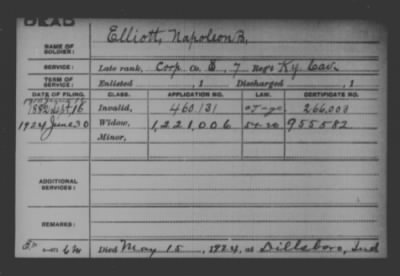 DEAD
NAME OF SOLDIER: Elliott, Napoleon B.
SERVICE: Late rank, Corp Co. B, 7 Reg't Ky. Cav.
TERM OF SERVICE: Enlisted , 1 Discharged , 1
DATE OF FILING. CLASS. APPLICATION NO. LAW. CERTIFICATE NO.
1882 Invalid, 460 131 266,008
1924 June 30 Widow, 1,221,006 955582
Minor,
ADDITIONAL SERVICES:
REMARKS:
Died May 15, 1924, at Dillsboro, Ind